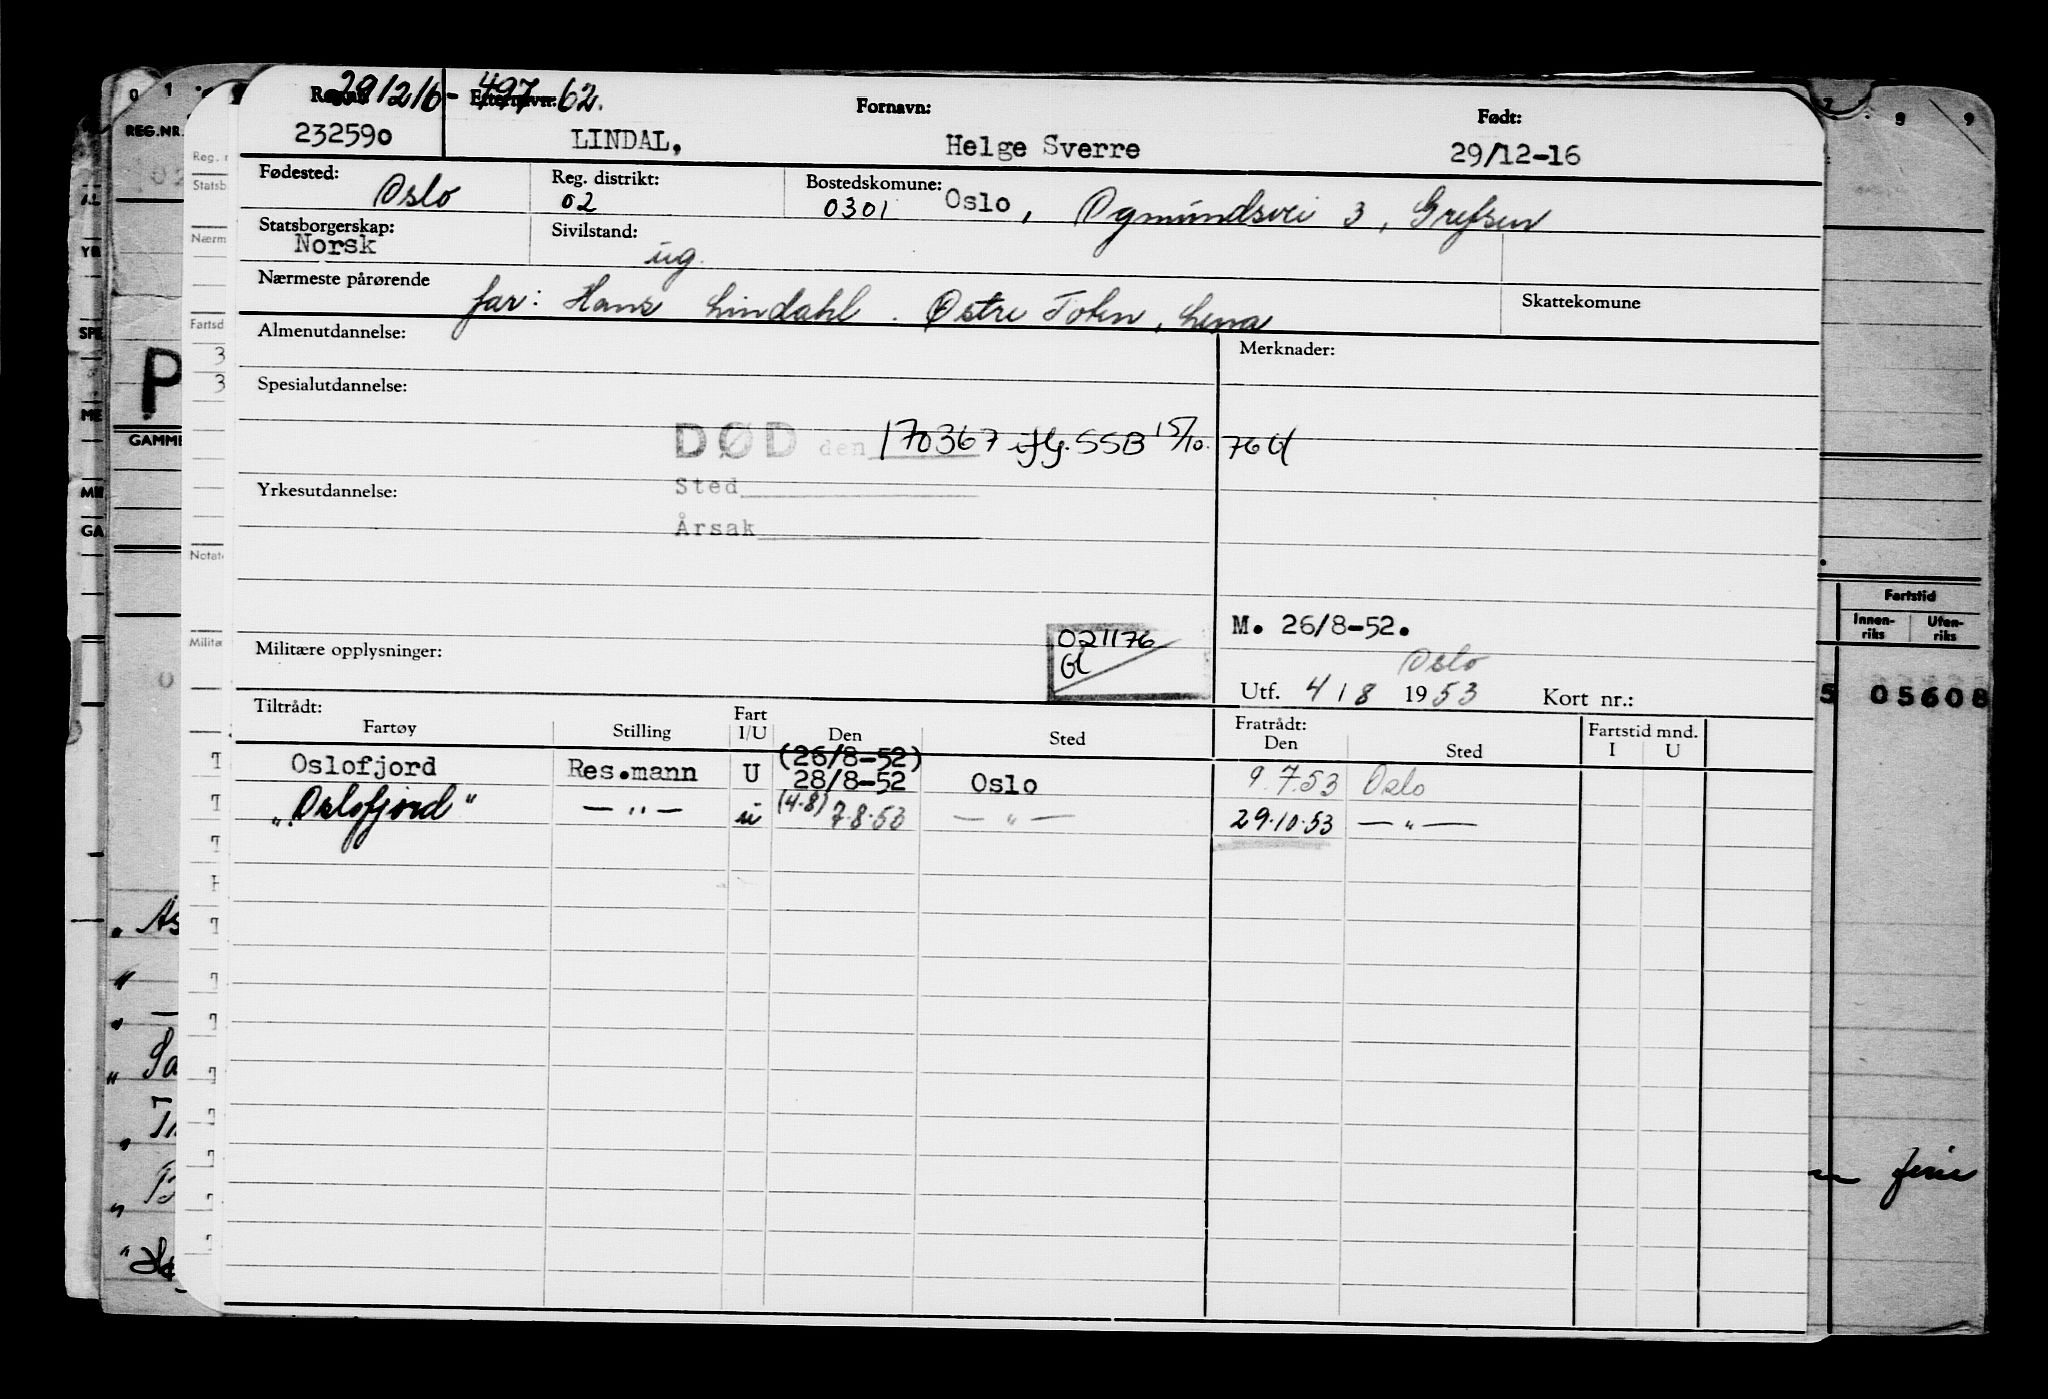 291216-497-62.
Reg. nr. Etternavn: Fornavn: Født:
232590 LINDAL, Helge Sverre 29/12-16
Fødested: Oslo Reg. distrikt: 02 Bostedskomune: 0301 Oslo, Ogmundsvei 3, Grefsen
Statsborgerskap: Norsk Sivilstand: ug.
Nærmeste pårørende far: Hans Lindahl. Østre Toten, Lena Skattekomune
Almenutdannelse: Merknader:
Spesialutdannelse:
DØD den 170367 iflg. SSB 15/10. 76 Gl
Sted
Yrkesutdannelse:
Årsak
M. 26/8-52.
Militære opplysninger: 021176 Gl
Oslo
Utf. 4/8 1953 Kort nr.:
Tiltrådt: Fratrådt:
Fartøy Stilling Fart I/U Den Sted Den Sted Fartstid mnd. I U
(26/8-52)
Oslofjord Res.mann U 28/8-52 Oslo 9.7.53 Oslo
"Oslofjord" — " — u (4.8) 7.8.53 — " — 29.10.53 — " —
REG.NR.
YR
SPE
P
ME
GAMME
GA
Reg. n
Statsb
Nærm
Fartsd
3
3
Notat
Militæ
Fartstid
Innen-riks Uten-riks
5 05608
As
Sa
ferie